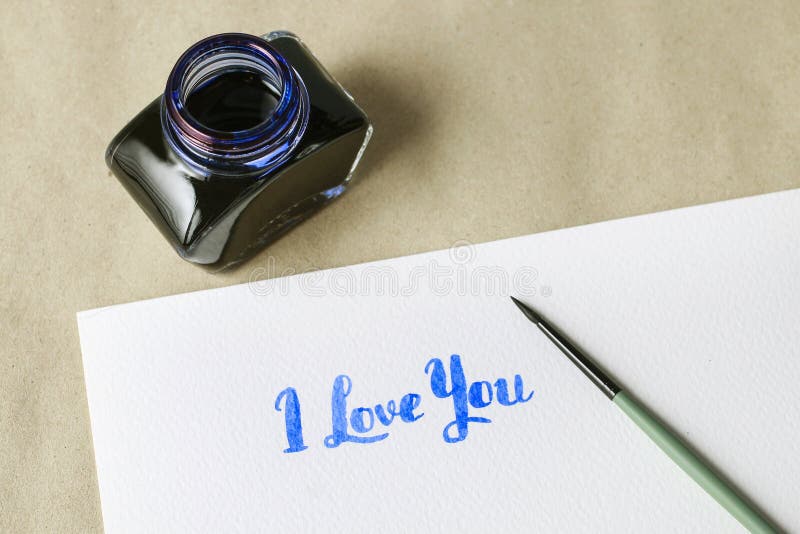 I Love You
dreamstime